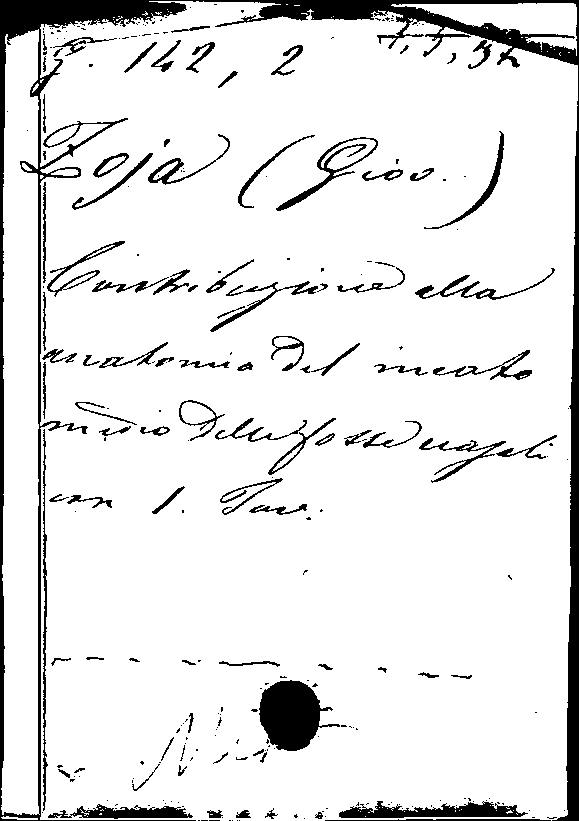 G. 142, 2 4, 5, 32
Zoja (Giov.)
Contribuzione alla
anatomia del meato
medio delle fosse nasali
con 1. Tav.